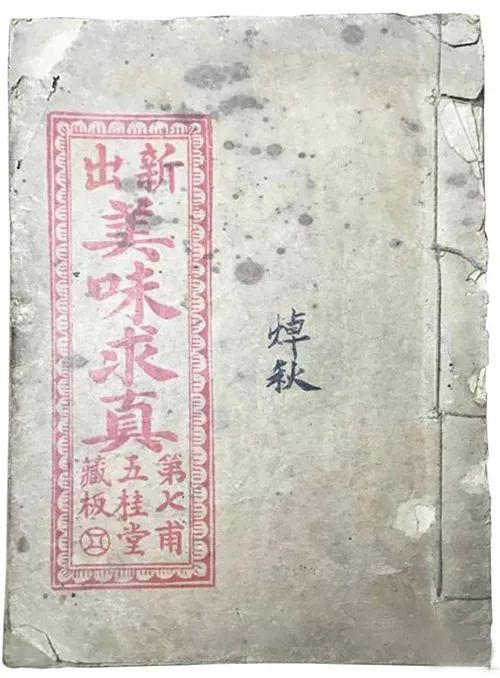 新出
美味求真
第七甫
五桂堂
藏板
焯秋